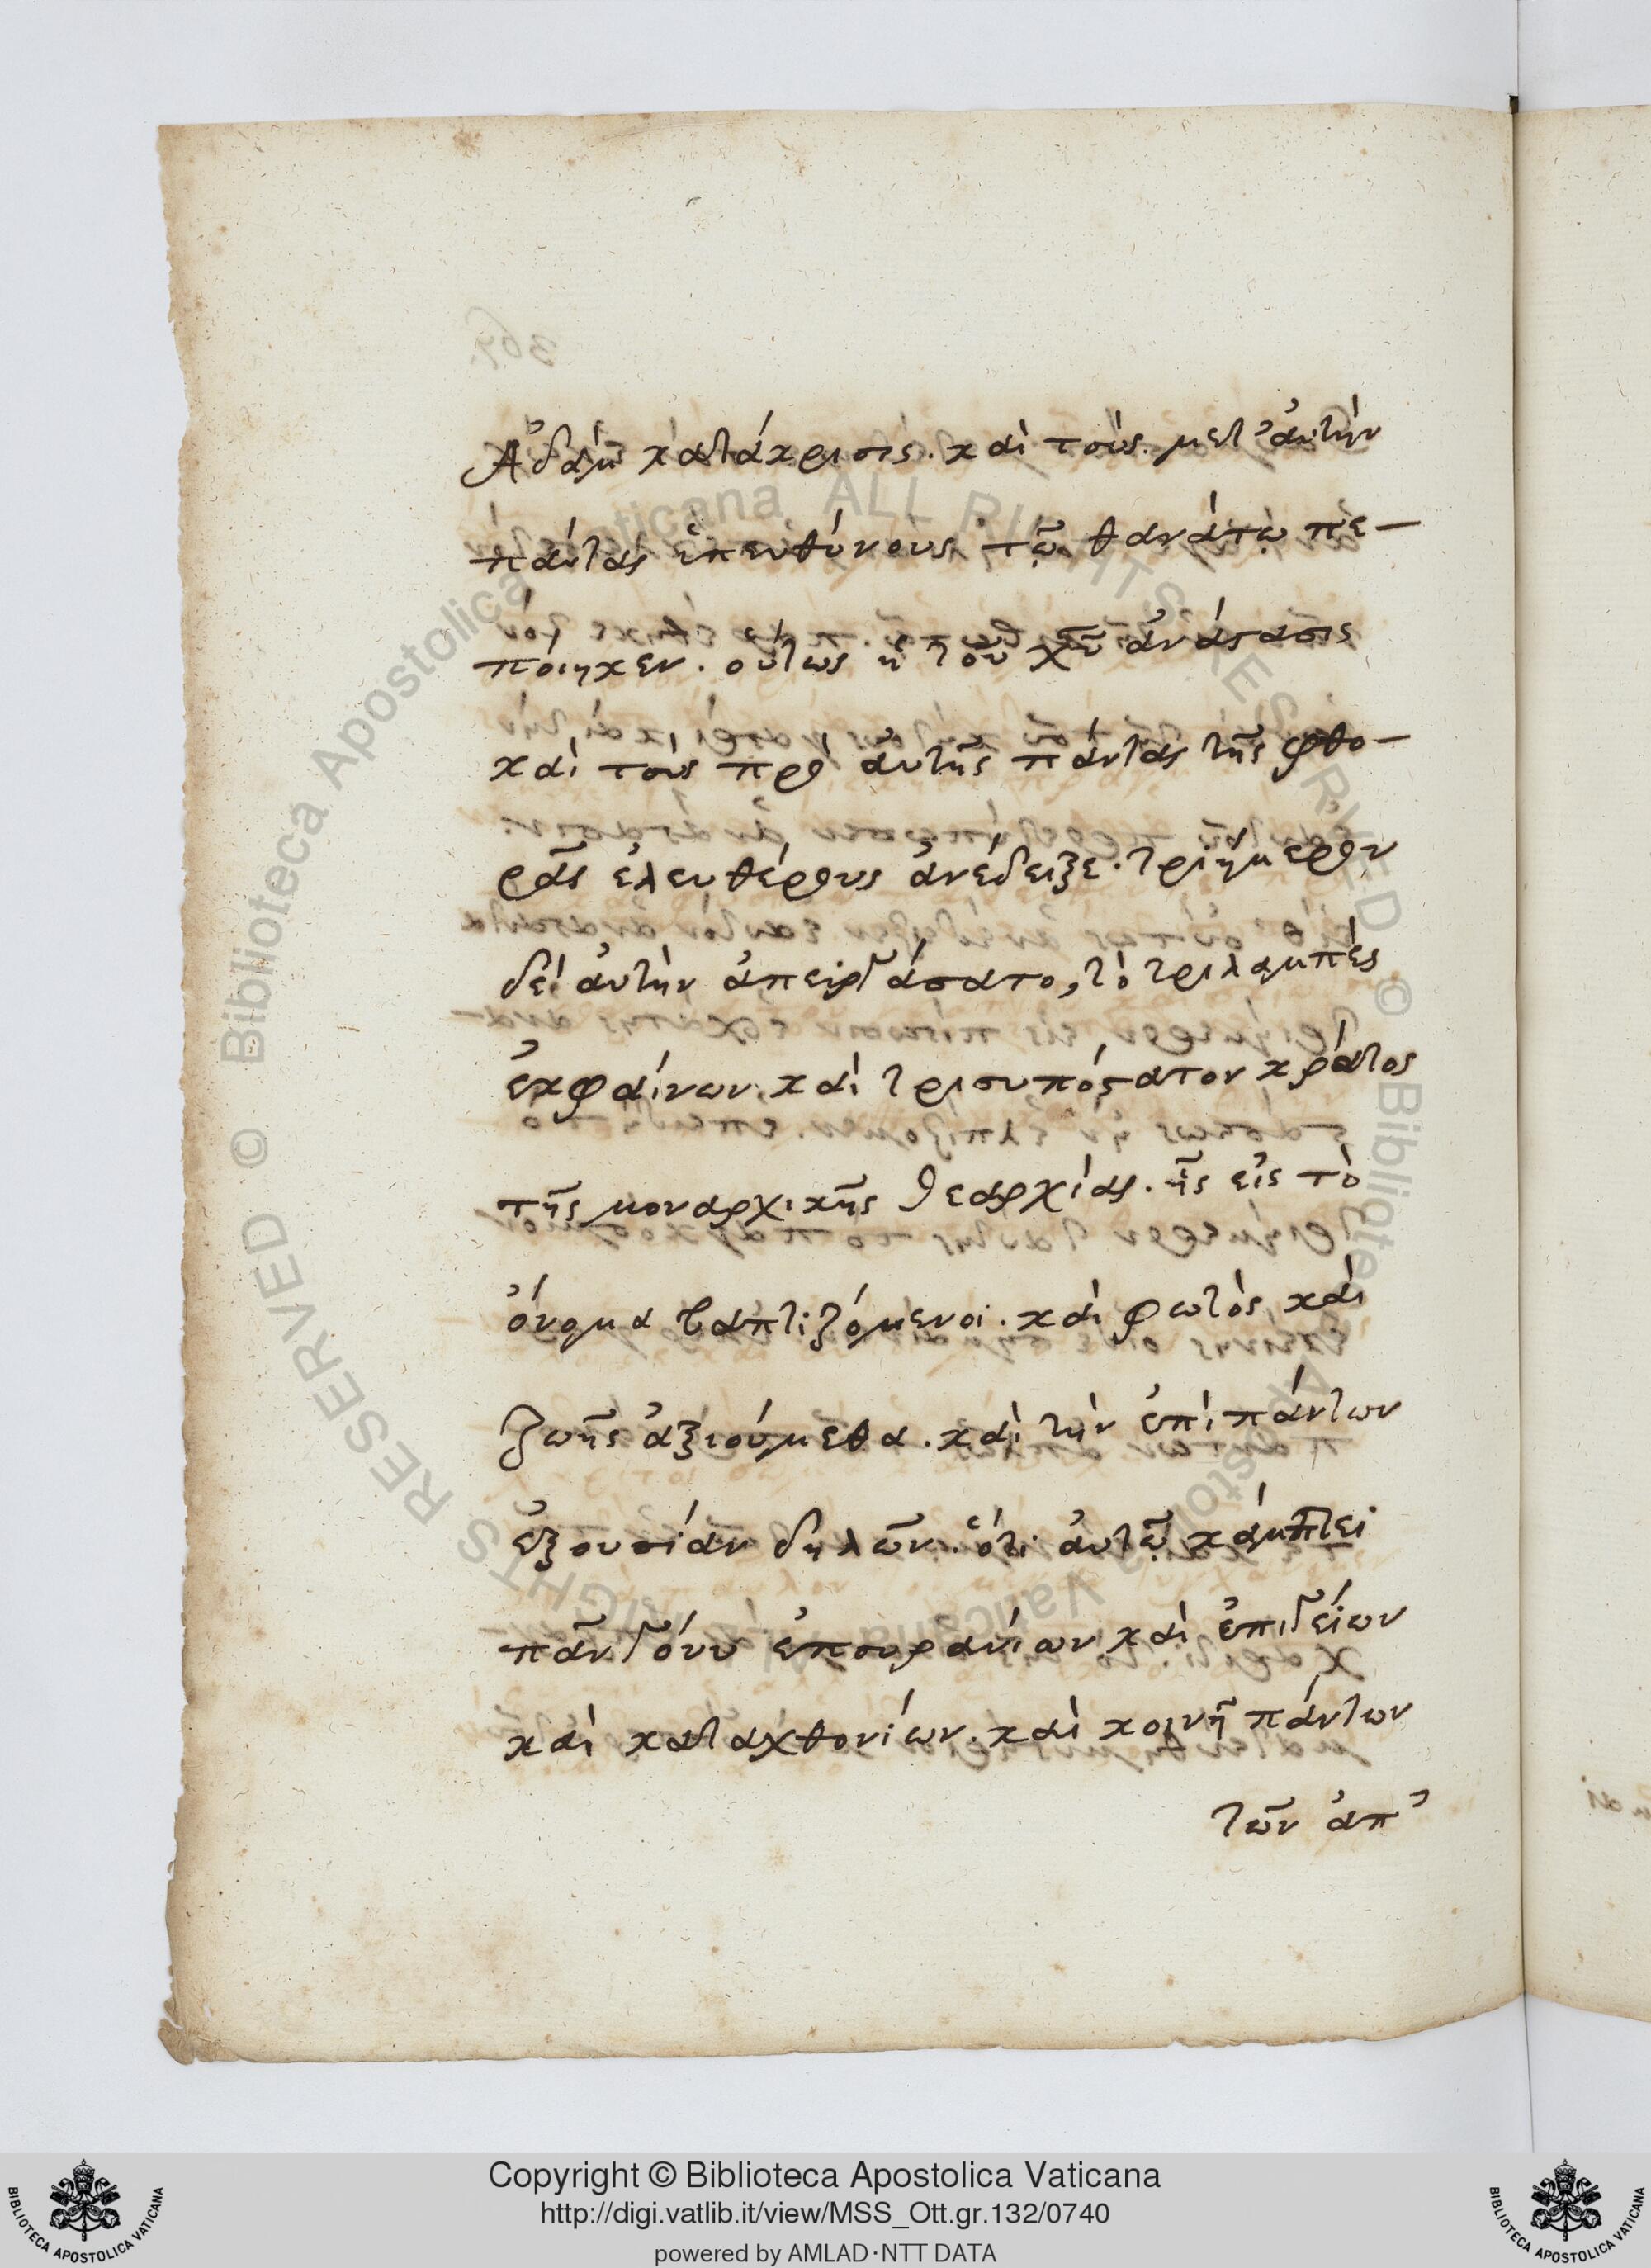 Ἀδὰμ κατάκρισις. καὶ τοὺς μετ' αὐτὴν
πάντας ὑπευθύνους τῷ θανάτῳ πε-
ποίηκεν. οὕτως ἡ τοῦ χῦ ἀνάστασις
καὶ τοὺς πρὸ αὐτῆς πάντας τῆς φθο-
ρᾶς ἐλευθέρους ἀνέδειξε. τριήμερον
δὲ αὐτὴν ἀπειργάσατο, τὸ τριλαμπὲς
ἐκφαίνων. καὶ τρισυπόστατον κράτος
τῆς μοναρχικῆς θεαρχίας. ἧς εἰς τὸ
ὄνομα βαπτιζόμενοι. καὶ φωτὸς καὶ
ζωῆς ἀξιούμεθα. καὶ τὴν ἐπὶ πάντων
ἐξουσίαν δηλῶν. ὅτι αὐτῷ κάμπτει
πᾶν γόνυ ἐπουρανίων καὶ ἐπιγείων
καὶ καταχθονίων. καὶ κοινῇ πάντων
τῶν ἀπ'
Copyright © Biblioteca Apostolica Vaticana
http://digi.vatlib.it/view/MSS_Ott.gr.132/0740
powered by AMLAD·NTT DATA
BIBLIOTECA APOSTOLICA VATICANA
BIBLIOTECA APOSTOLICA VATICANA